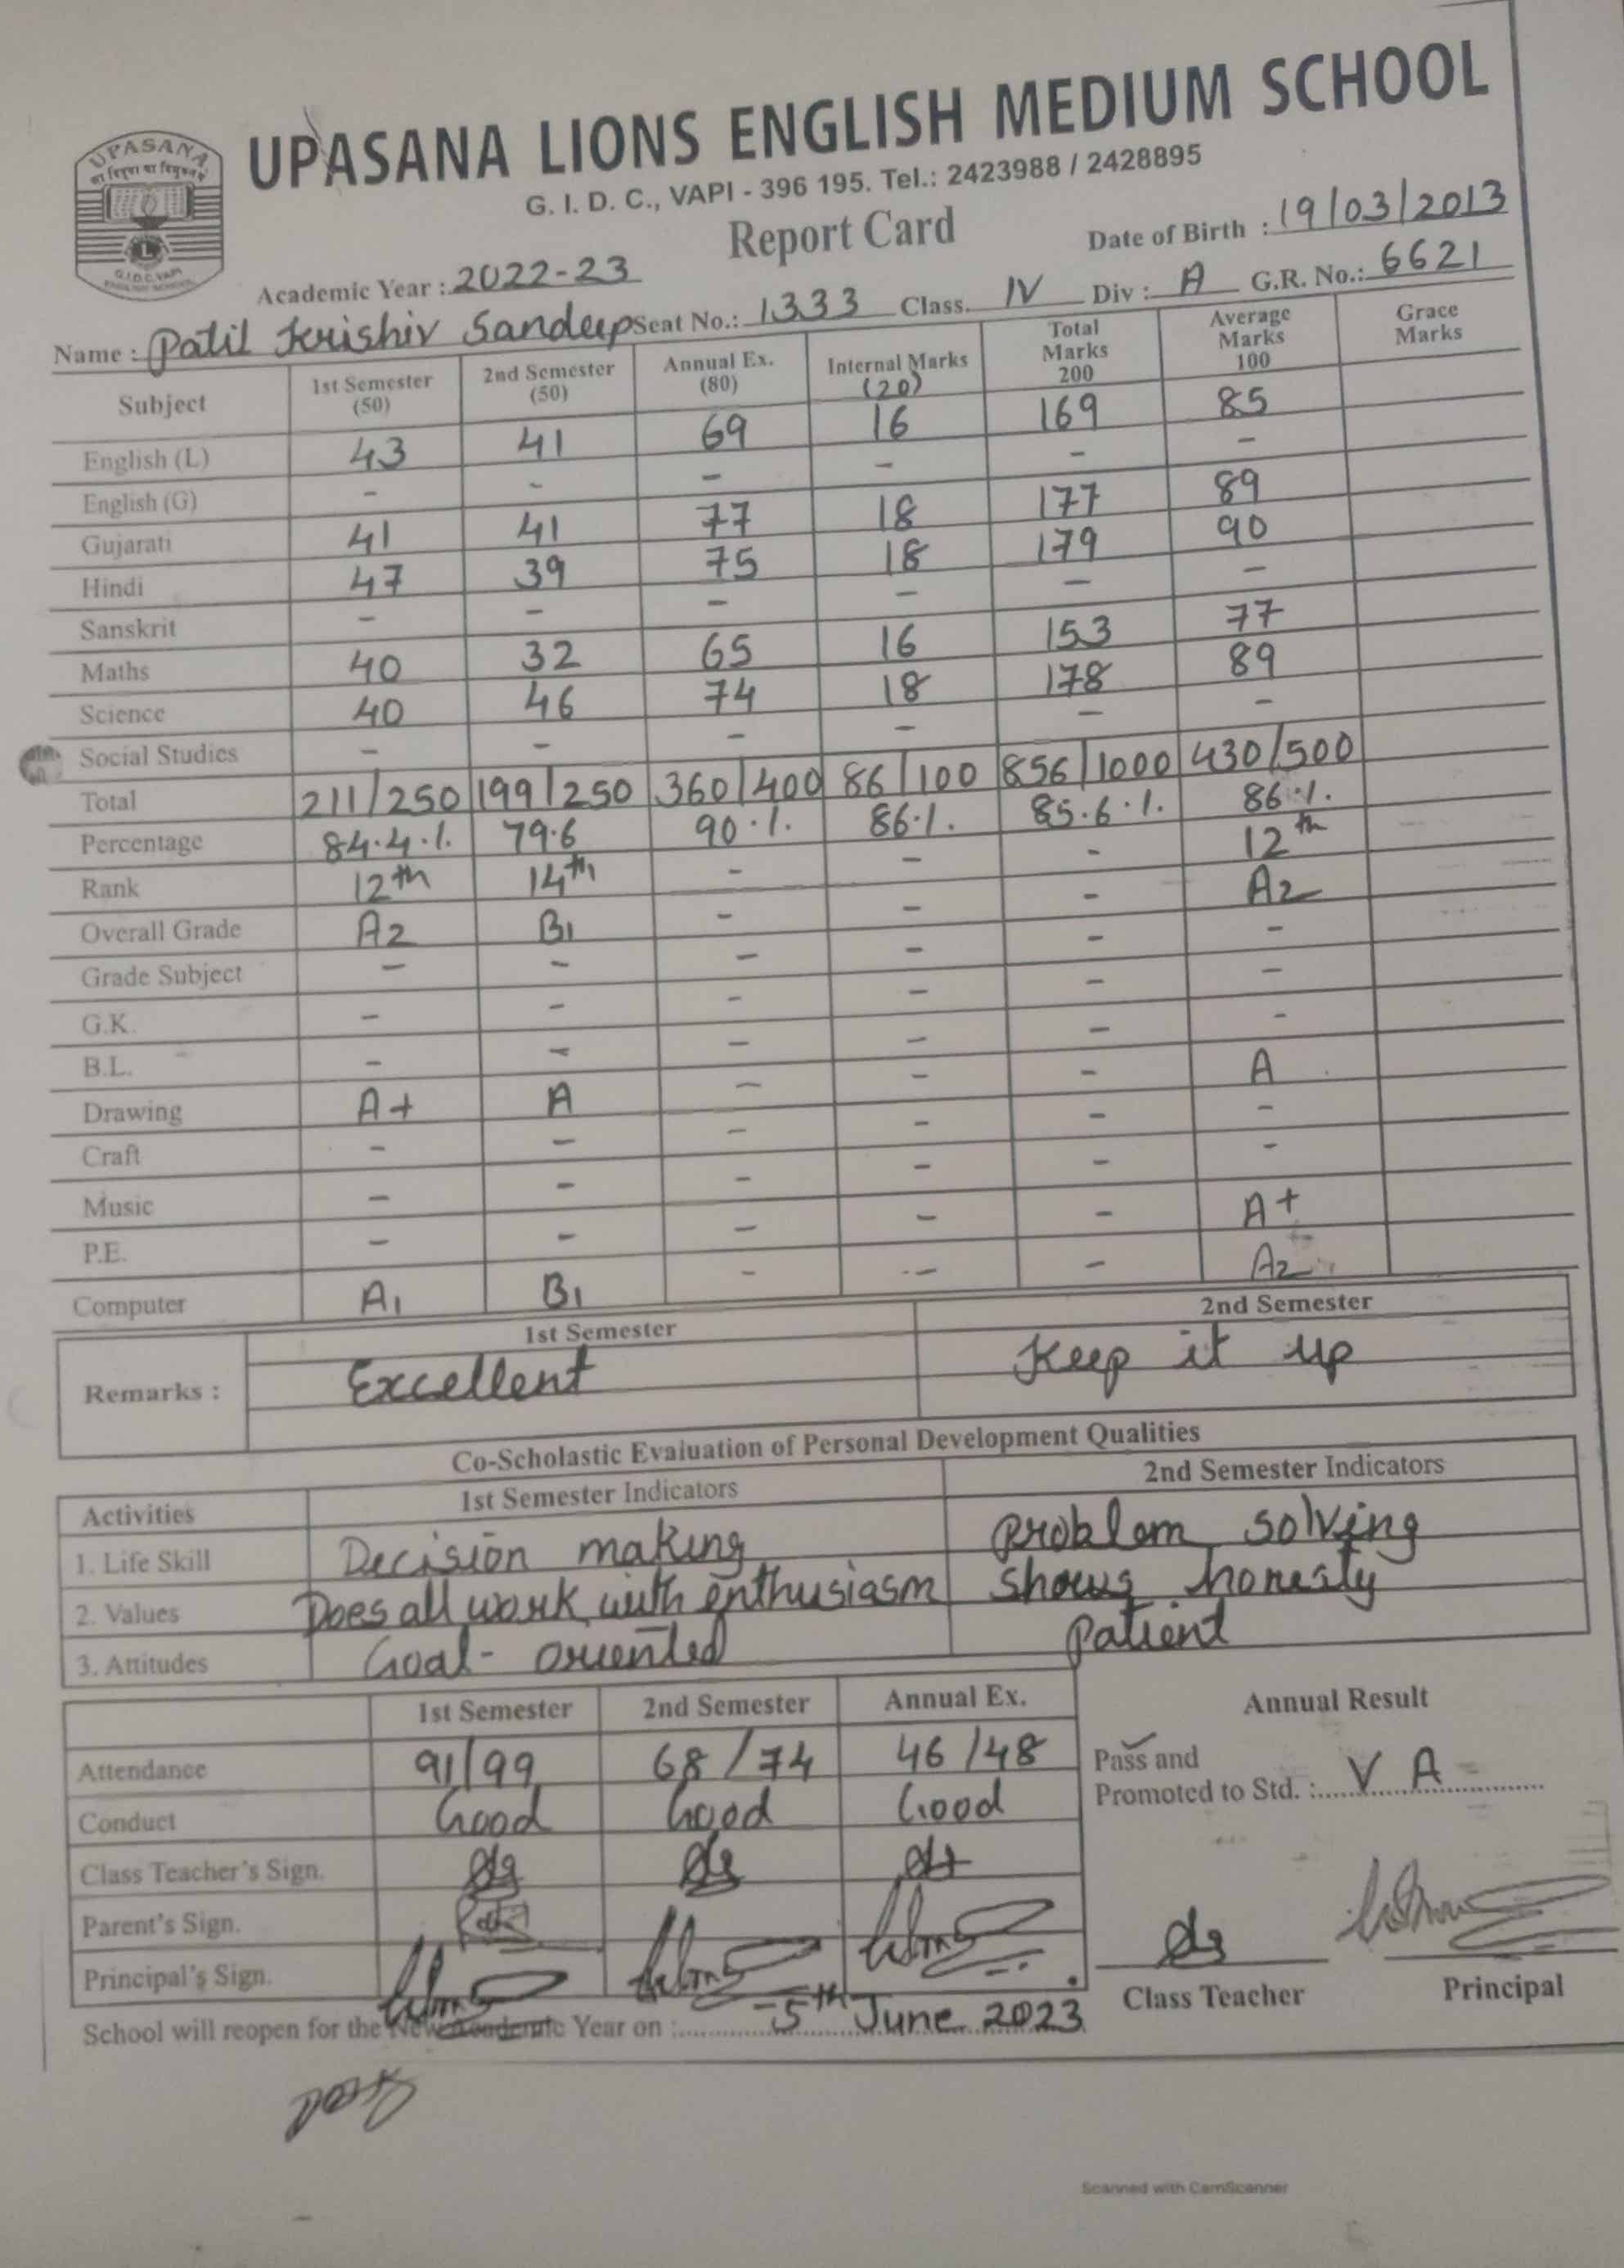 UPASANA
G.I.D.C. VAPI
ENGLISH SCHOOL
UPASANA LIONS ENGLISH MEDIUM SCHOOL
G. I. D. C., VAPI - 396 195. Tel.: 2423988 / 2428895
Report Card
Date of Birth : 19/03/2013
Academic Year : 2022-23
Name : Patil Krishiv Sandeep Seat No.: 1333 Class. IV Div : A G.R. No.: 6621
Subject 1st Semester (50) 2nd Semester (50) Annual Ex. (80) Internal Marks (20) Total Marks 200 Average Marks 100 Grace Marks
English (L) 43 41 69 16 169 85
English (G) - - - - - -
Gujarati 41 41 77 18 177 89
Hindi 47 39 75 18 179 90
Sanskrit - - - - - -
Maths 40 32 65 16 153 77
Science 40 46 74 18 178 89
Social Studies - - - - - -
Total 211/250 199/250 360/400 86/100 856/1000 430/500
Percentage 84.4.1. 79.6 90.1. 86.1. 85.6.1. 86.1.
Rank 12th 14th - - - 12th
Overall Grade A2 B1 - - - A2
Grade Subject - - - - - -
G.K. - - - - - -
B.L. - - - - - -
Drawing A+ A - - - A
Craft - - - - - -
Music - - - - - -
P.E. - - - - - A+
Computer A1 B1 - - - A2
1st Semester 2nd Semester
Remarks : Excellent Keep it up
Co-Scholastic Evaluation of Personal Development Qualities
Activities 1st Semester Indicators 2nd Semester Indicators
1. Life Skill Decision making Problem solving
2. Values Does all work with enthusiasm shows honesty
3. Attitudes Goal-oriented Patient
1st Semester 2nd Semester Annual Ex. Annual Result
Attendance 91/99 68/74 46/48 Pass and
Promoted to Std. : V A
Conduct Good Good Good
Class Teacher's Sign.
Parent's Sign.
Principal's Sign.
Class Teacher Principal
School will reopen for the New Academic Year on : 5th June 2023
Scanned with CamScanner